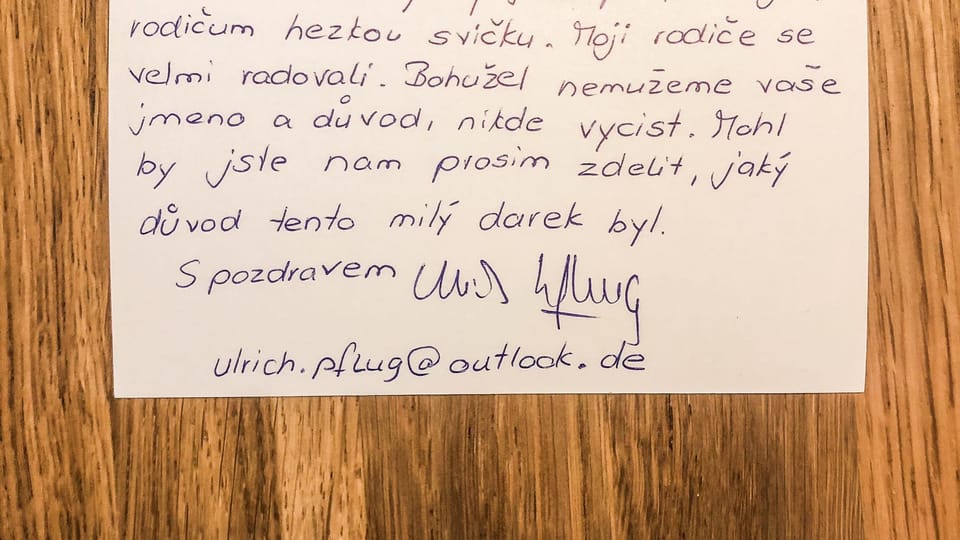 rodičum hezkou svičku. Moji rodiče se
velmi radovali. Bohužel nemužeme vaše
jmeno a důvod, nikde vycist. Mohl
by jste nam prosim zdelit, jaký
důvod tento milý darek byl.
S pozdravem Pflug
ulrich.pflug@outlook.de